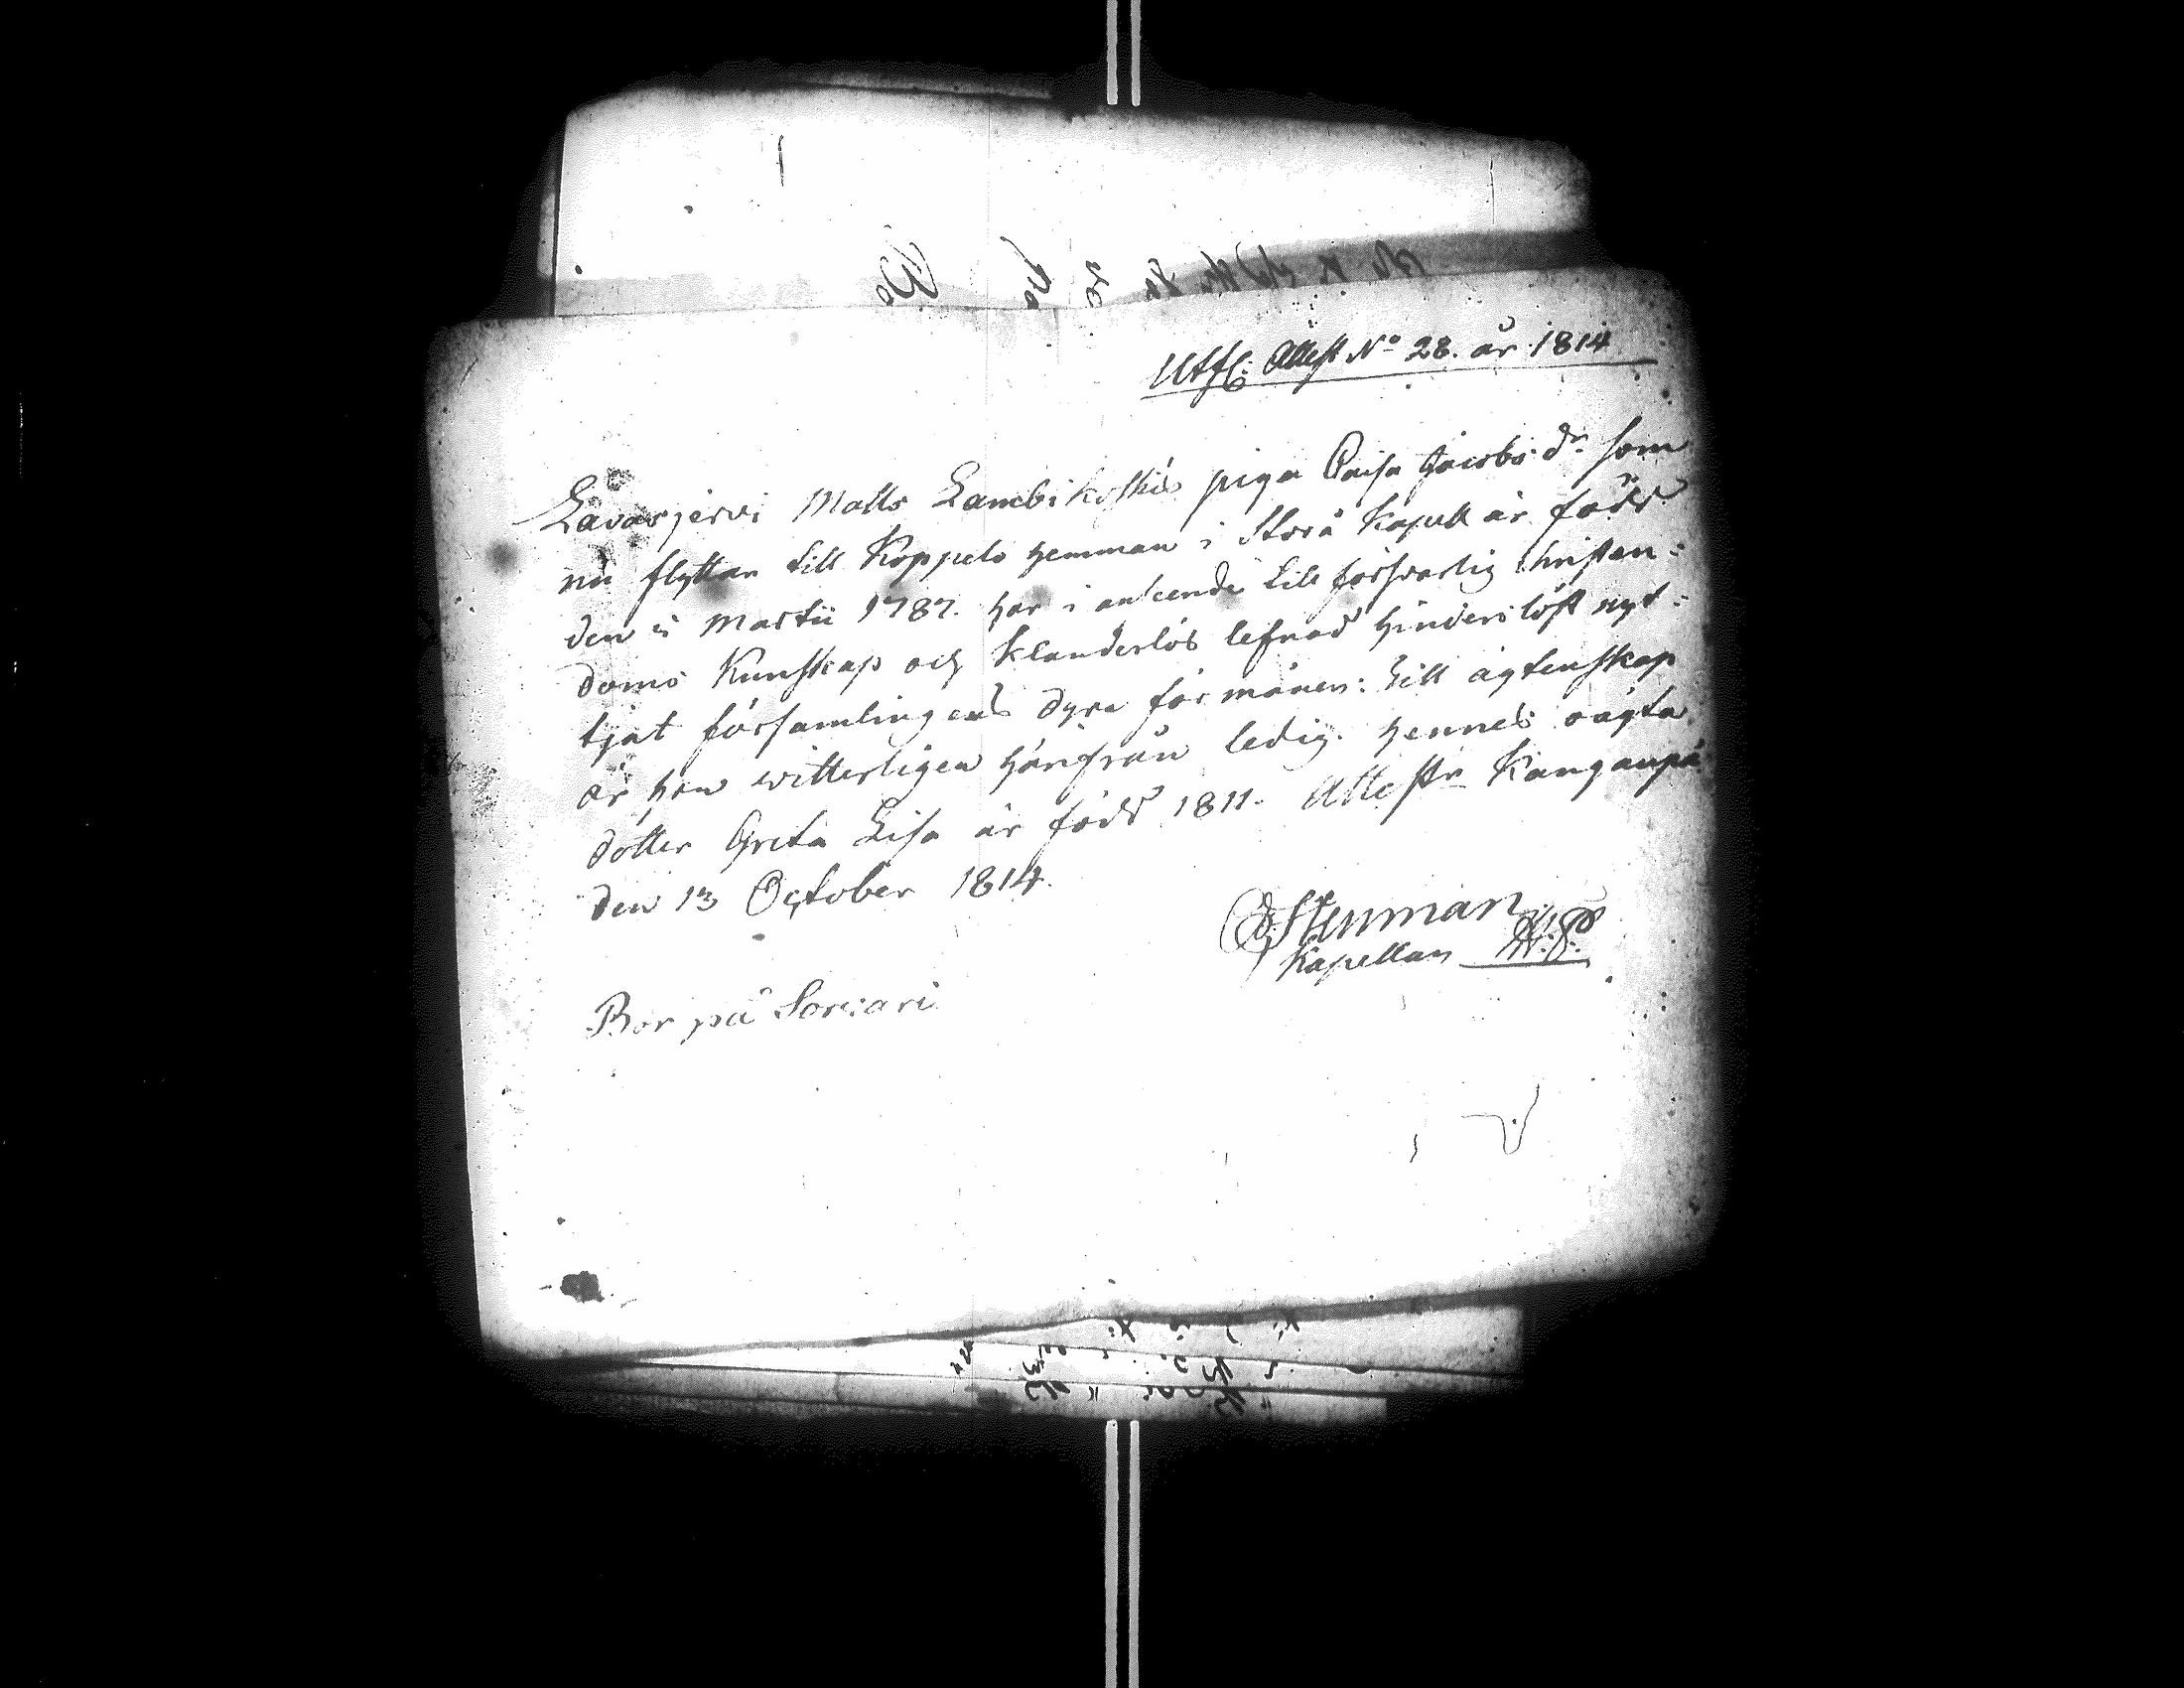 Utfl. Attest No 28. år 1814
Lavasjervi Matts Lambikoskis piga Caisa Jacobs dr som
nu flyttar till Koppelo hemman i Storå Kapell är född
den 5 Martii 1787. har i anseende till försvarlig Christen=
doms Kunskap och klanderlös lefnad hinderslöst nyt=
tjat församlingens dyra förmåner: till ägtenskap
är hon witterligen härifrån ledig. hennes oägta
dotter Greta Lisa är född 1811. Attestr Kanganpä
den 13 October 1814.
Stenman
Kapellan
Bor på Sorvari